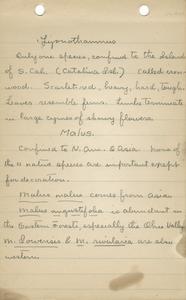 Lyonothamnus
Only one species, confined to the Islands
of S. Cal. (Catalina Isl.) called iron-
wood. Scarlet red, heavy, hard, tough.
Leaves resemble ferns. Limbs terminate
in large cymes of showy flowers.
Malus.
Confined to N. Am. & Asia. None of
the 11 native species are important except
for decoration.
Malus malus comes from Asia
Malus angustifolia is abundant in
the Eastern Forests, especially the Ohio Valley
M. Lowensis & M. rivularis are also
western.